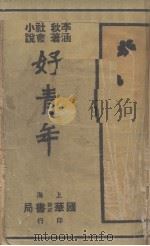 李涵秋著
社會小說
好青年
上海國華書局印行